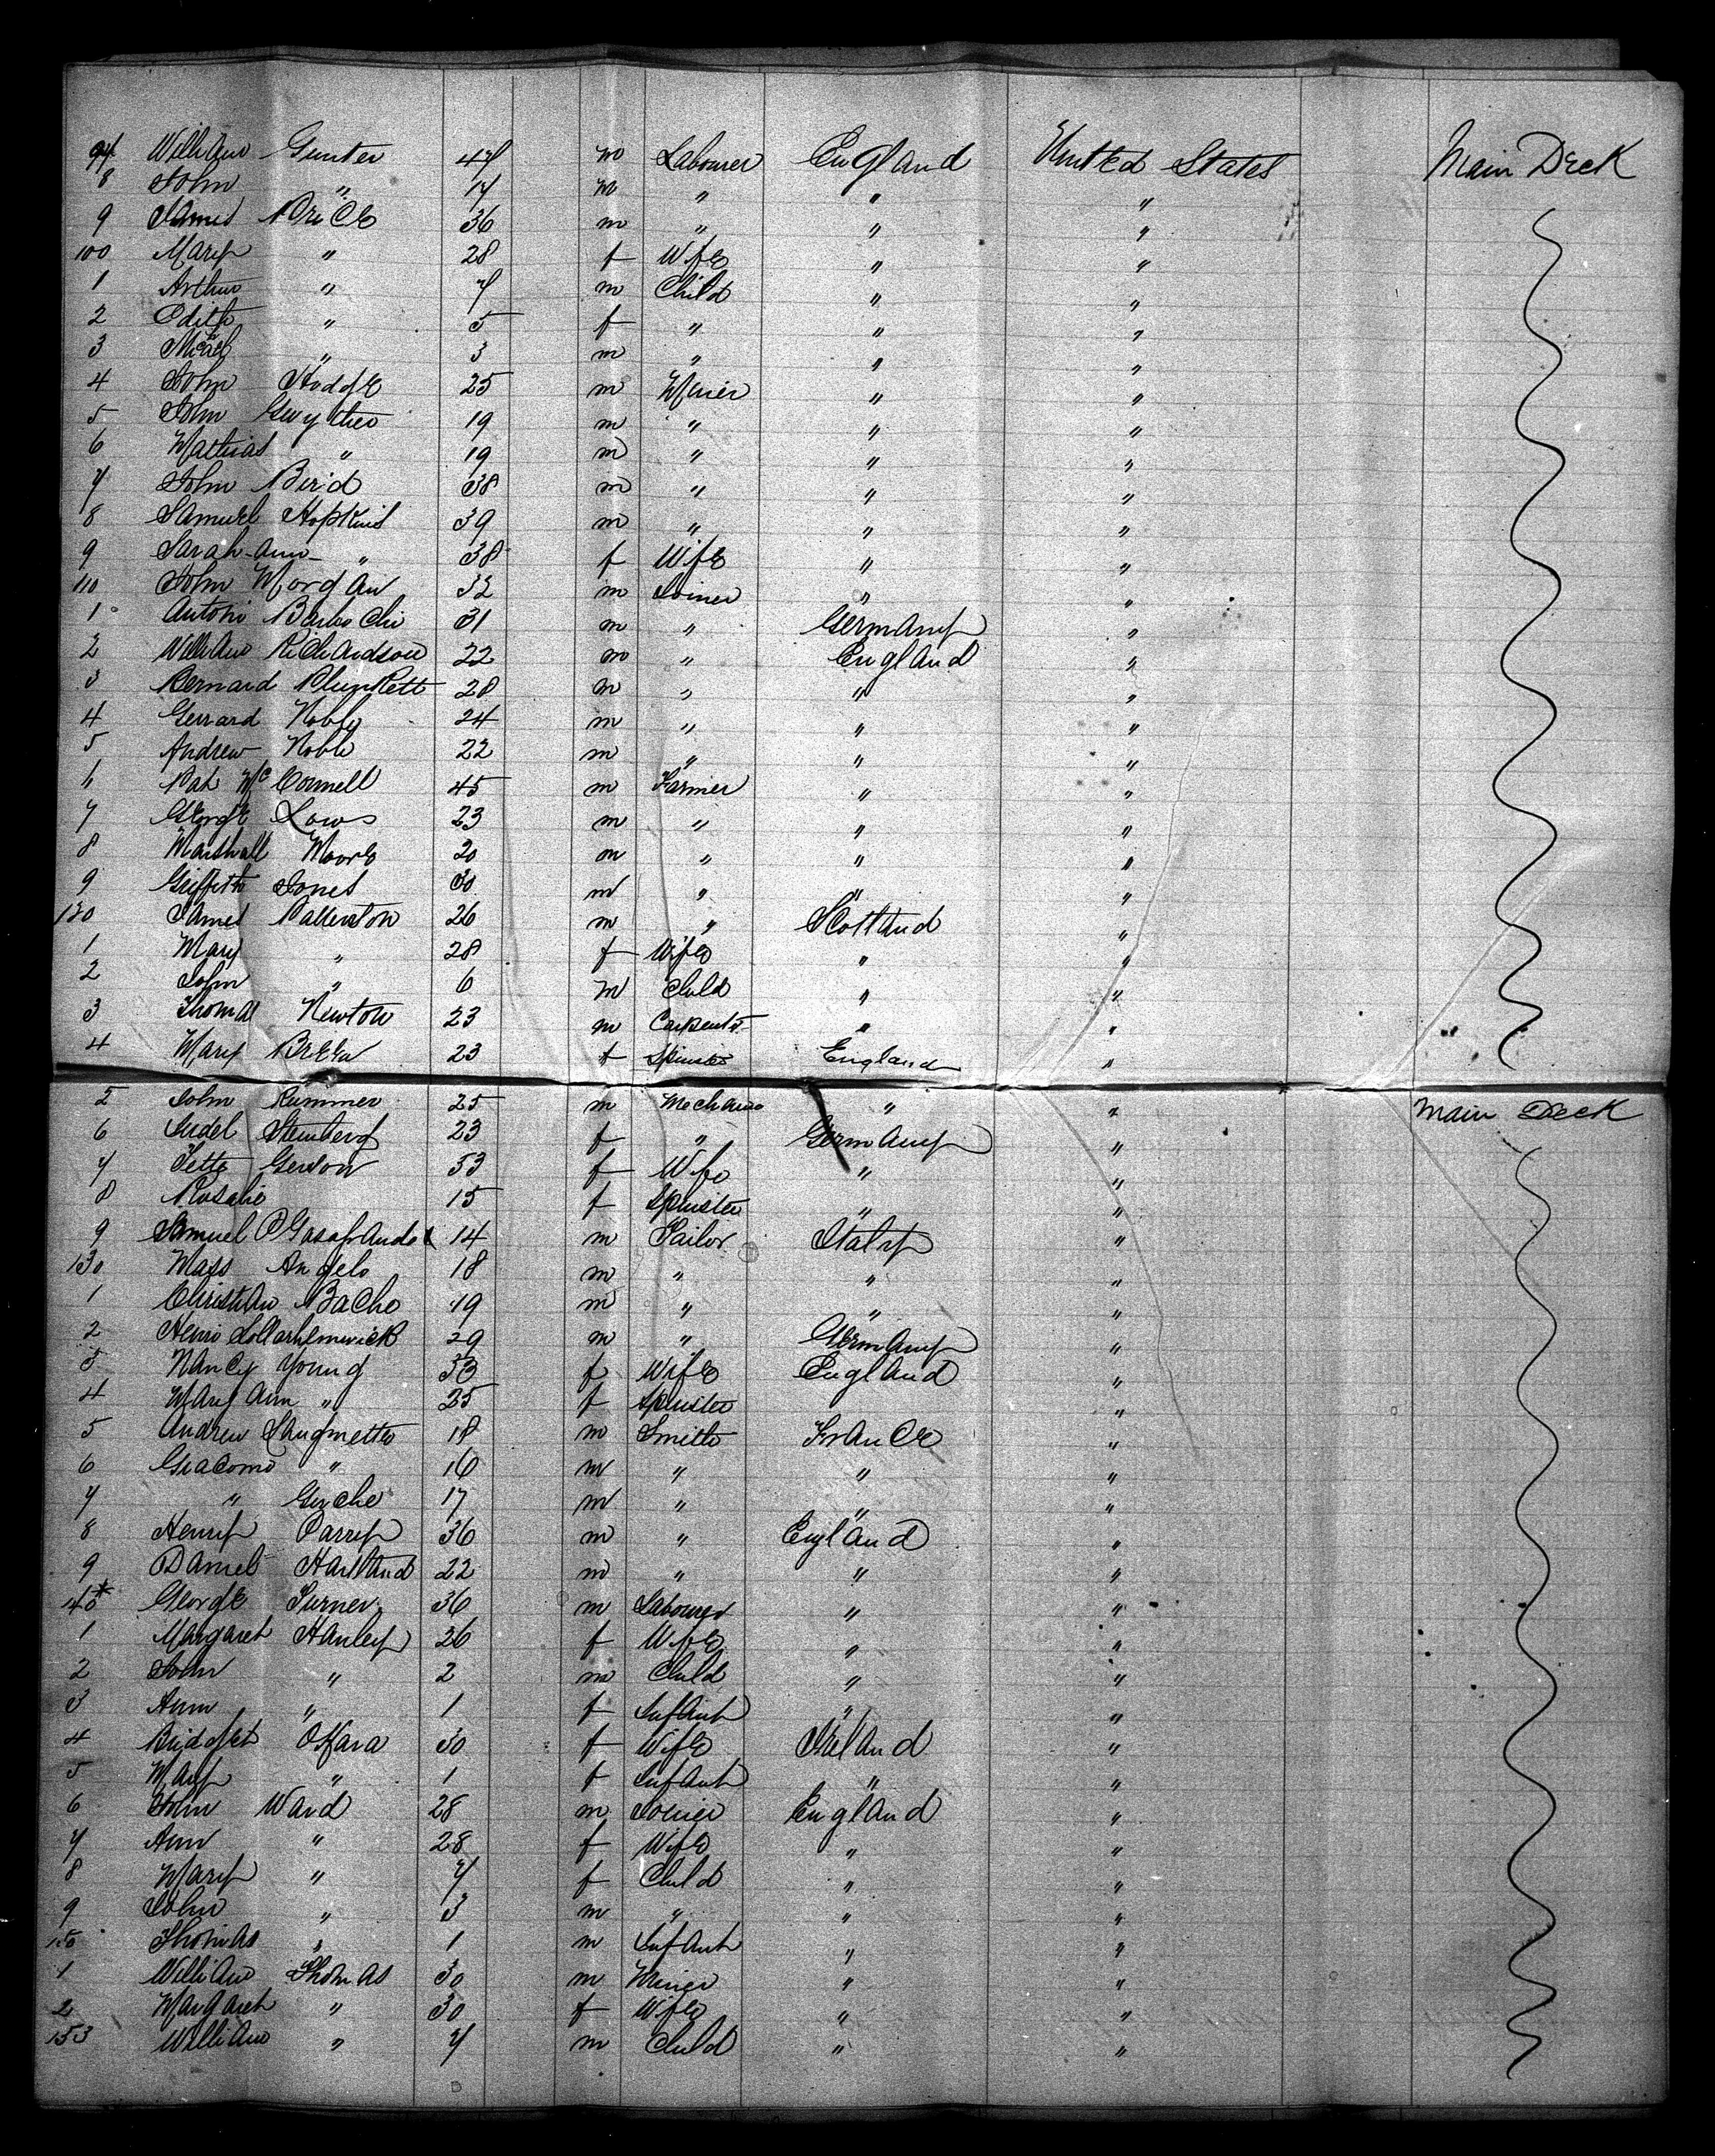 97 William Gunter 47 m Labourer England United States Main Deck
8 John " 17 m " " "
9 James Price 36 m " " "
100 Mary " 28 f Wife " "
1 Arthur " 7 m Child " "
2 Edith " 5 f " " "
3 " 3 m " " "
4 John Hodge 25 m Miner " "
5 John Gwyther 19 m " " "
6 Mathias " 19 m " " "
7 John Bird 38 m " " "
8 Samuel Hopkins 39 m " " "
9 Sarah Ann " 38 f Wife " "
110 John Morgan 32 m Joiner " "
1 Antoni 31 m " Germany "
2 William Richardson 22 m " England "
3 Bernard Plunkett 28 m " " "
4 Gerrard Noble 24 m " " "
5 Andrew Noble 22 m " " "
6 Pat McConnell 45 m Farmer " "
7 George Lows 23 m " " "
8 Marshall Moore 20 m " " "
9 Griffith Jones 30 m " " "
120 James Patterson 26 m " Scotland "
1 Mary " 28 f Wife " "
2 John " 6 m Child " "
3 Thomas Newton 23 m Carpenter " "
4 Mary Breen 23 f Spinster England "
5 John Rummer 25 m Mechanic " " Main Deck
6 Steinberg 23 f " Germany "
7 Gerson 53 f Wife " "
8 Rosalie 15 f Spinster " "
9 Samuel 14 m Tailor Italy "
130 Mass Angelo 18 m " " "
1 Christian Bache 19 m " " "
2 Henri 29 m " Germany "
3 Nancy Young 53 f Wife England "
4 Mary Ann " 25 f Spinster " "
5 Andrew 18 m Smith France "
6 Giacomo " 16 m " " "
7 " Gerche 17 m " " "
8 Henry Parry 36 m " England "
9 Daniel Hartland 22 m " " "
140* George Turner 36 m Labourer " "
1 Margaret Hanley 26 f Wife " "
2 John " 2 m Child " "
3 Ann " 1 f Infant " "
4 Bridget OHara 30 f Wife Ireland "
5 Mary " 1 f Infant " "
6 John Ward 28 m Joiner England "
7 Ann " 28 f Wife " "
8 Mary " 7 f Child " "
9 John " 3 m " " "
150 Thomas " 1 m Infant " "
1 William Thomas 30 m Miner " "
2 Margaret " 30 f Wife " "
153 William " 7 m Child " "